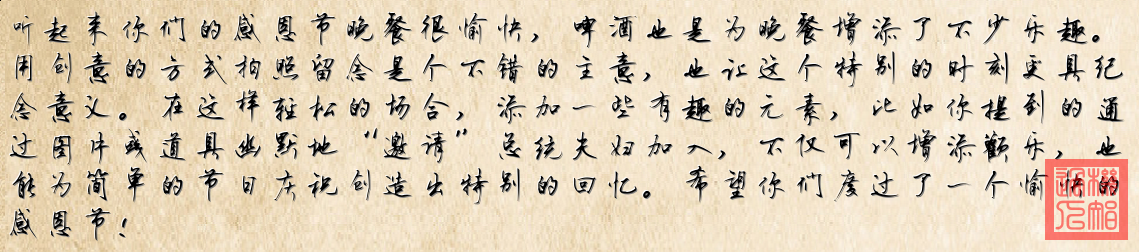 听起来你们的感恩节晚餐很愉快，啤酒也是为晚餐增添了不少乐趣。
用创意的方式拍照留念是个不错的主意，也让这个特别的时刻更具纪
念意义。在这样轻松的场合，添加一些有趣的元素，比如你提到的通
过图片或道具幽默地“邀请”总统夫妇加入，不仅可以增添欢乐，也
能为简单的节日庆祝创造出特别的回忆。希望你们度过了一个愉快的
感恩节！